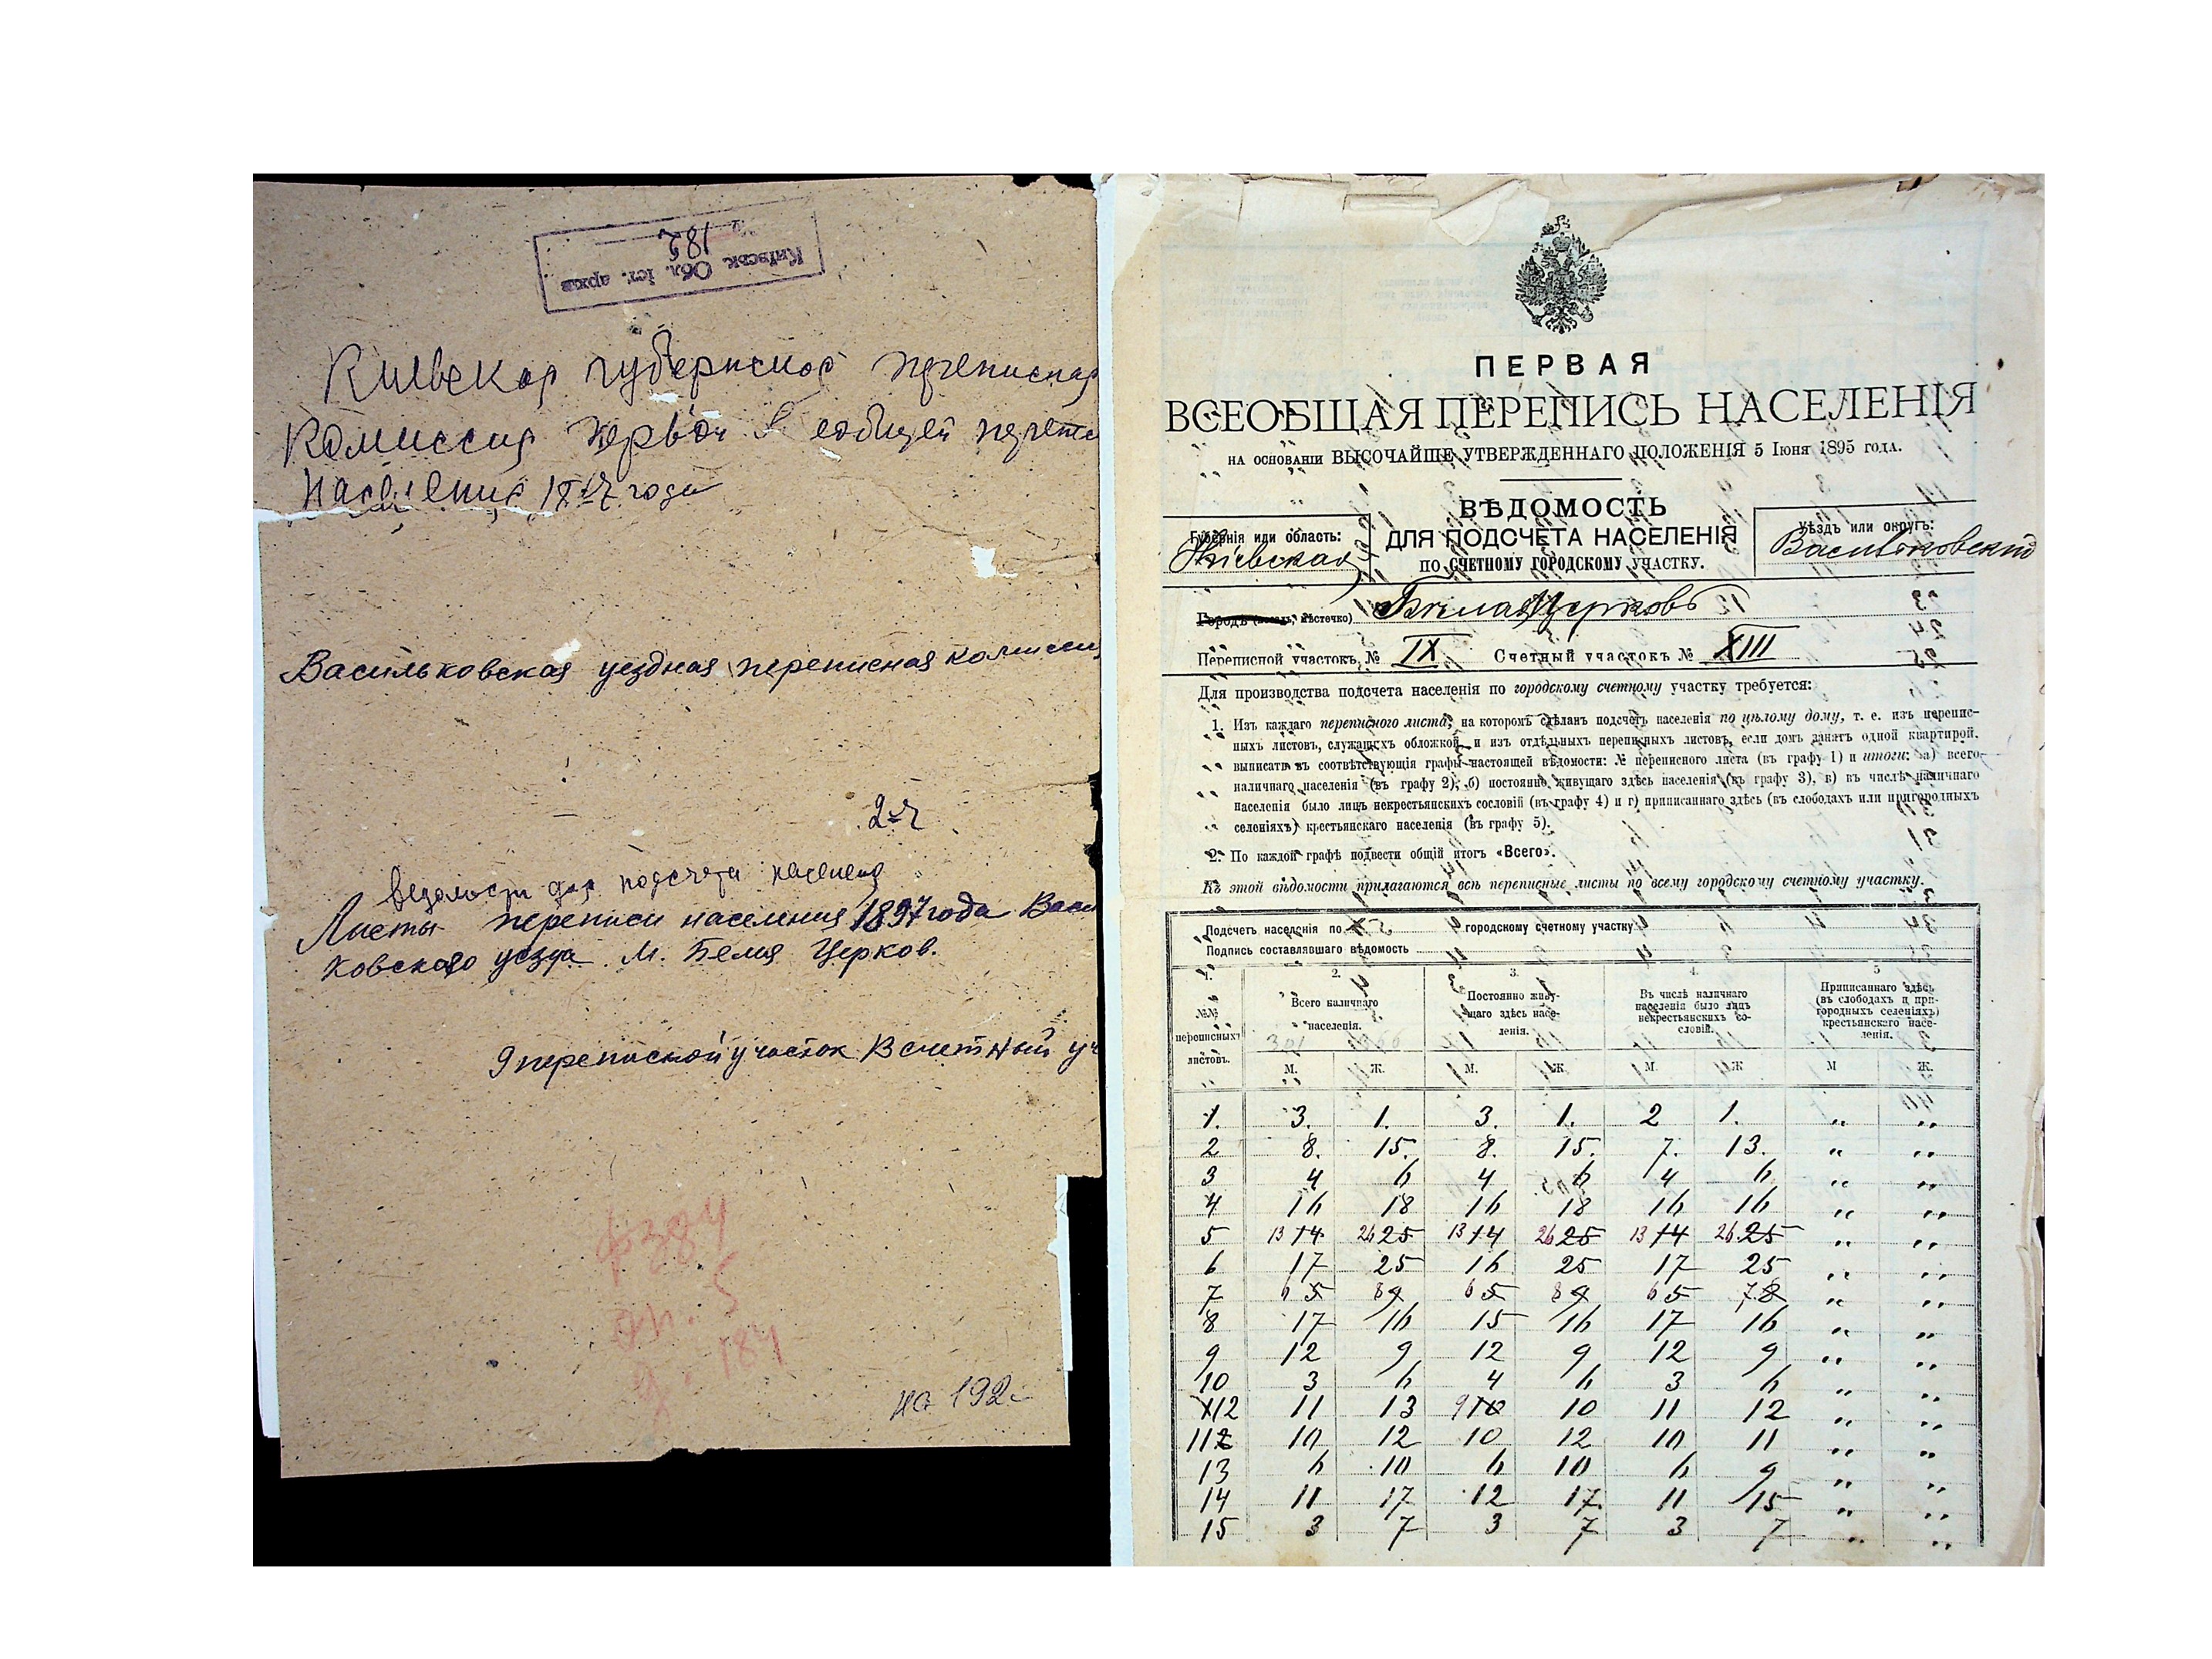 Київськ. Обл. іст. архив
182
Киевская губернская переписная
Комиссия первой всеобщей перепи
населения 1897 года
Васильковская уездная переписная комиссия
2-ч
ведомости для подсчета населения
Листы переписи населения 1897 года Васи
ковского уезда м. Белая Церков.
9 переписной участок 13 счетный уч
ф 384
оп. 5
д. 184
на 192
ПЕРВАЯ
ВСЕОБЩАЯ ПЕРЕПИСЬ НАСЕЛЕНІЯ
НА ОСНОВАНІИ ВЫСОЧАЙШЕ УТВЕРЖДЕННАГО ПОЛОЖЕНІЯ 5 Іюня 1895 года.
ВѢДОМОСТЬ
ДЛЯ ПОДСЧЕТА НАСЕЛЕНІЯ
ПО СЧЕТНОМУ ГОРОДСКОМУ УЧАСТКУ.
Губернія или область:
Кіевская
Уѣздъ или округъ:
Васильковскій
Городъ (посадъ, мѣстечко) Бѣлая Церковь
Переписной участокъ № IX Счетный участокъ № XIII
Для производства подсчета населенія по городскому счетному участку требуется:
1. Изъ каждаго переписного листа, на которомъ сдѣланъ подсчетъ населенія по цѣлому дому, т. е. изъ перепис-
ныхъ листовъ, служащихъ обложкой и изъ отдѣльныхъ переписныхъ листовъ, если домъ занятъ одной квартирой,
выписать въ соотвѣтствующія графы настоящей вѣдомости: № переписного листа (въ графу 1) и итоги: а) всего
наличнаго населенія (въ графу 2), б) постоянно живущаго здѣсь населенія (въ графу 3), в) въ числѣ наличнаго
населенія было лицъ некрестьянскихъ сословій (въ графу 4) и г) приписаннаго здѣсь (въ слободахъ или пригородныхъ
селеніяхъ) крестьянскаго населенія (въ графу 5).
2. По каждой графѣ подвести общій итогъ «Всего».
Къ этой вѣдомости прилагаются всѣ переписные листы по всему городскому счетному участку.
Подсчетъ населенія по городскому счетному участку
Подпись составлявшаго вѣдомость
1. 2. 3. 4. 5
№№ переписныхъ листовъ.
Всего наличнаго населенія.
301 300
Постоянно живу-
щаго здѣсь насе-
ленія.
Въ числѣ наличнаго
населенія было лицъ
некрестьянскихъ со-
словій.
Приписаннаго здѣсь
(въ слободахъ и при-
городныхъ селеніяхъ)
крестьянскаго насе-
ленія.
М. Ж. М. Ж. М. Ж М Ж.
1. 3. 1. 3. 1. 2 1. " "
2 8. 15. 8. 15. 7. 13. " "
3 4 6 4 6 4 6 " "
4 16 18 16 18 16 16 " "
5 13 14 26 25 13 14 26 25 13 14 26 25 " "
6 17 25 16 25 17 25 " "
7 6 5 8 9 6 5 8 9 6 5 7 8 " "
8 17 16 15 16 17 16 " "
9 12 9 12 9 12 9 " "
10 3 6 4 6 3 6 " "
12 11 13 9 10 10 11 12 " "
11 10 12 10 12 10 11 " "
13 6 10 6 10 6 9 " "
14 11 17 12 17 11 15 " "
15 3 7 3 7 3 7 " "